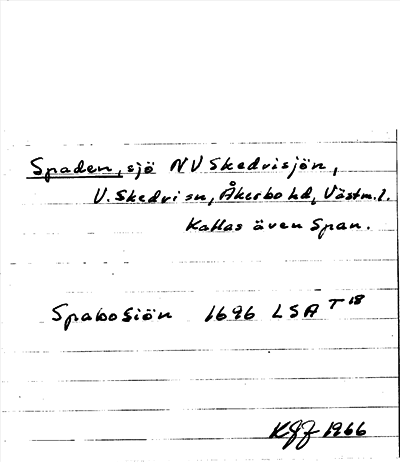 Spaden, sjö NV Skedvisjön,
V. Skedvi sn, Åkerbo hd, Västm.l.
Kallas även Span.
Spabosiön 1696 LSA T 18
KGJ 1966